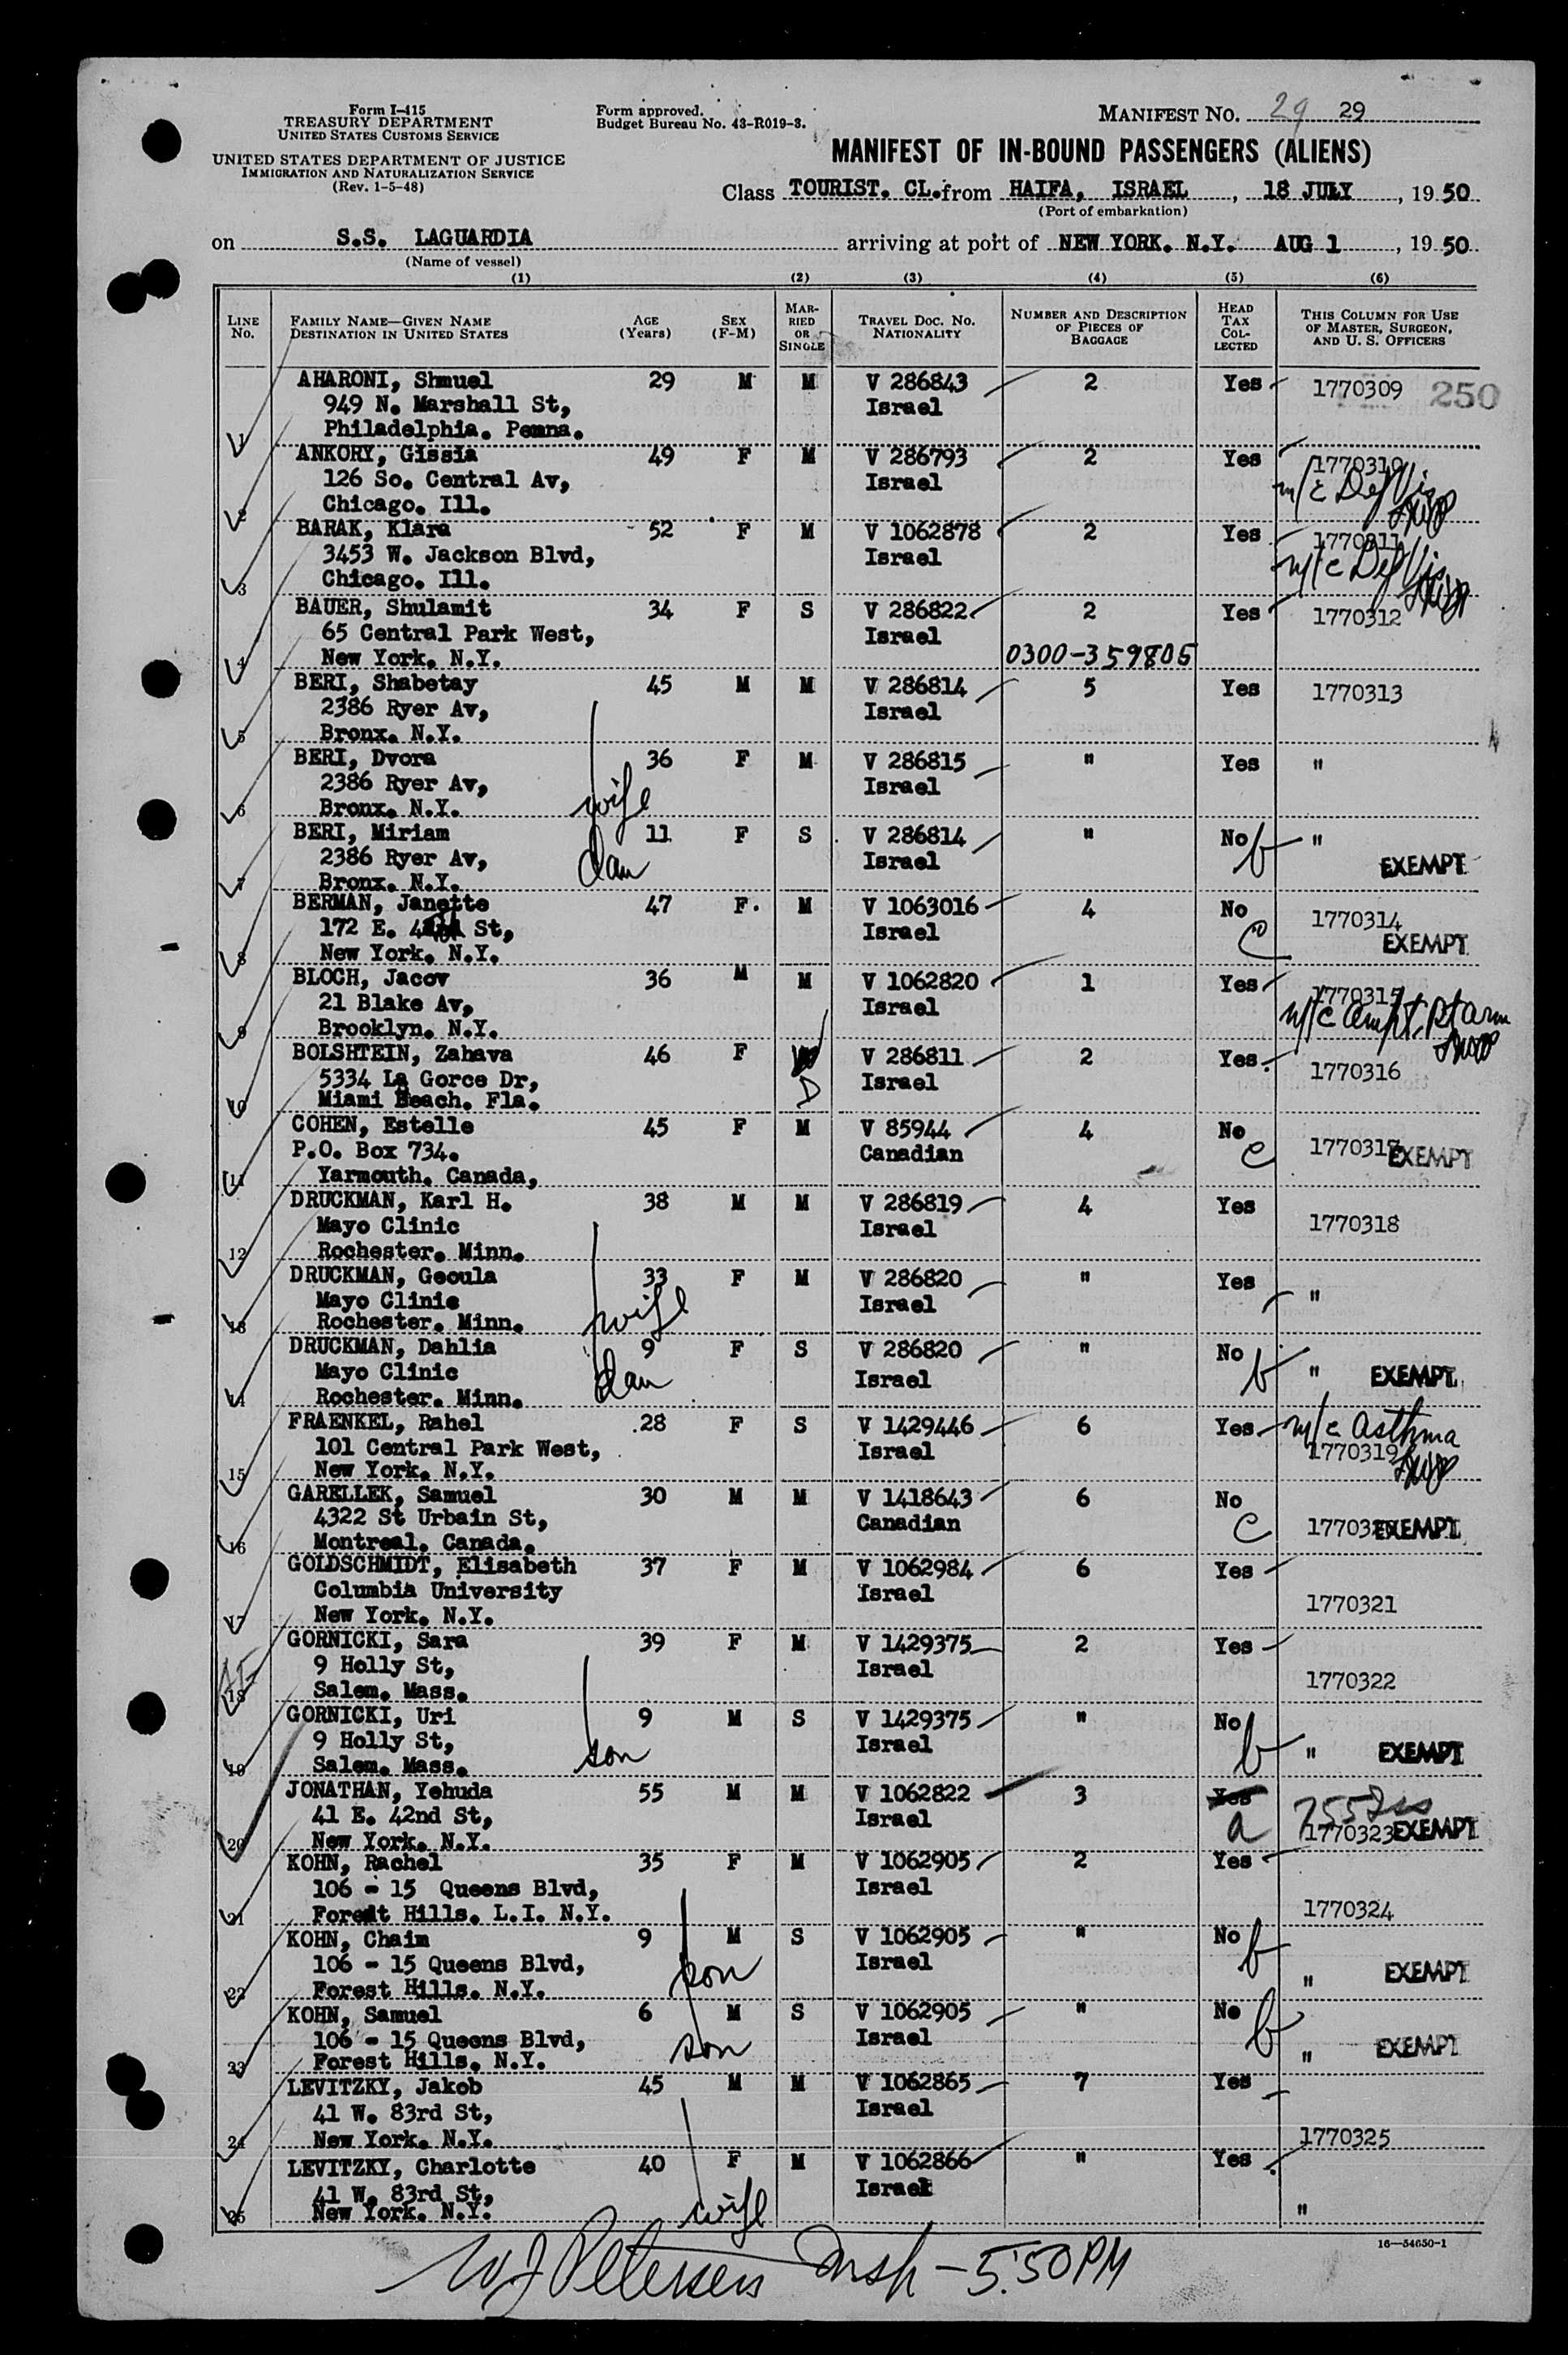 Form I-415
TREASURY DEPARTMENT
UNITED STATES CUSTOMS SERVICE
UNITED STATES DEPARTMENT OF JUSTICE
IMMIGRATION AND NATURALIZATION SERVICE
(Rev. 1-5-48)
Form approved.
Budget Bureau No. 43-R019-3.
MANIFEST NO. 29 29
MANIFEST OF IN-BOUND PASSENGERS (ALIENS)
Class TOURIST. CL. from HAIFA, ISRAEL, 18 JULY, 1950
(Port of embarkation)
on S.S. LAGUARDIA arriving at port of NEW YORK. N.Y. AUG 1, 1950
(Name of vessel)
(1) (2) (3) (4) (5) (6)
LINE NO. FAMILY NAME—GIVEN NAME DESTINATION IN UNITED STATES AGE (Years) SEX (F-M) MARRIED OR SINGLE TRAVEL DOC. NO. NATIONALITY NUMBER AND DESCRIPTION OF PIECES OF BAGGAGE HEAD TAX COLLECTED THIS COLUMN FOR USE OF MASTER, SURGEON, AND U. S. OFFICERS
AHARONI, Shmuel 29 M M V 286843 2 Yes 1770309 250
949 N. Marshall St, Israel
1 Philadelphia. Penna.
ANKORY, Gissia 49 F M V 286793 2 Yes 1770310
126 So. Central Av, Israel m/c Def Vis
2 Chicago. Ill.
BARAK, Klara 52 F M V 1062878 2 Yes 1770311
3453 W. Jackson Blvd, Israel m/c Def Vis
3 Chicago. Ill.
BAUER, Shulamit 34 F S V 286822 2 Yes 1770312
65 Central Park West, Israel
4 New York. N.Y. 0300-359805
BERI, Shabetay 45 M M V 286814 5 Yes 1770313
2386 Ryer Av, Israel
5 Bronx. N.Y.
BERI, Dvora 36 F M V 286815 " Yes "
2386 Ryer Av, Israel
6 Bronx. N.Y. wife
BERI, Miriam 11 F S V 286814 " No b "
2386 Ryer Av, dau Israel EXEMPT
7 Bronx. N.Y.
BERMAN, Janette 47 F. M V 1063016 4 No 1770314
172 E. St, Israel C EXEMPT
8 New York. N.Y.
BLOCH, Jacov 36 M M V 1062820 1 Yes 1770315
21 Blake Av, Israel m/c Ampt. Rt arm
9 Brooklyn. N.Y.
BOLSHTEIN, Zahava 46 F D V 286811 2 Yes 1770316
5334 La Gorce Dr, Israel
10 Miami Beach. Fla.
COHEN, Estelle 45 F M V 85944 4 No 1770317 EXEMPT
P.O. Box 734. Canadian C
11 Yarmouth. Canada,
DRUCKMAN, Karl H. 38 M M V 286819 4 Yes 1770318
Mayo Clinic Israel
12 Rochester. Minn.
DRUCKMAN, Geoula 33 F M V 286820 " Yes "
Mayo Clinic wife Israel
13 Rochester. Minn.
DRUCKMAN, Dahlia 9 F S V 286820 " No b "
Mayo Clinic dau Israel EXEMPT
14 Rochester. Minn.
FRAENKEL, Rahel 28 F S V 1429446 6 Yes m/c Asthma
101 Central Park West, Israel 1770319
15 New York. N.Y.
GARELLEK, Samuel 30 M M V 1418643 6 No
4322 St Urbain St, Canadian C EXEMPT
16 Montreal. Canada.
GOLDSCHMIDT, Elisabeth 37 F M V 1062984 6 Yes
Columbia University Israel 1770321
17 New York. N.Y.
GORNICKI, Sara 39 F M V 1429375 2 Yes
9 Holly St, Israel 1770322
18 Salem. Mass.
GORNICKI, Uri 9 M S V 1429375 " No b "
9 Holly St, son Israel EXEMPT
19 Salem. Mass.
JONATHAN, Yehuda 55 M M V 1062822 3 Yes
41 E. 42nd St, Israel a 1770323 EXEMPT
20 New York. N.Y.
KOHN, Rachel 35 F M V 1062905 2 Yes
106 - 15 Queens Blvd, Israel 1770324
21 Forest Hills. L.I. N.Y.
KOHN, Chaim 9 M S V 1062905 " No b
106 - 15 Queens Blvd, son Israel " EXEMPT
22 Forest Hills. N.Y.
KOHN, Samuel 6 M S V 1062905 " No b
106 - 15 Queens Blvd, son Israel " EXEMPT
23 Forest Hills. N.Y.
LEVITZKY, Jakob 45 M M V 1062865 7 Yes
41 W. 83rd St, Israel
24 New York. N.Y. 1770325
LEVITZKY, Charlotte 40 F M V 1062866 " Yes
41 W. 83rd St, Israel
25 New York. N.Y. wife "
16—54650-1
W J Petersen Insp - 5:50 PM